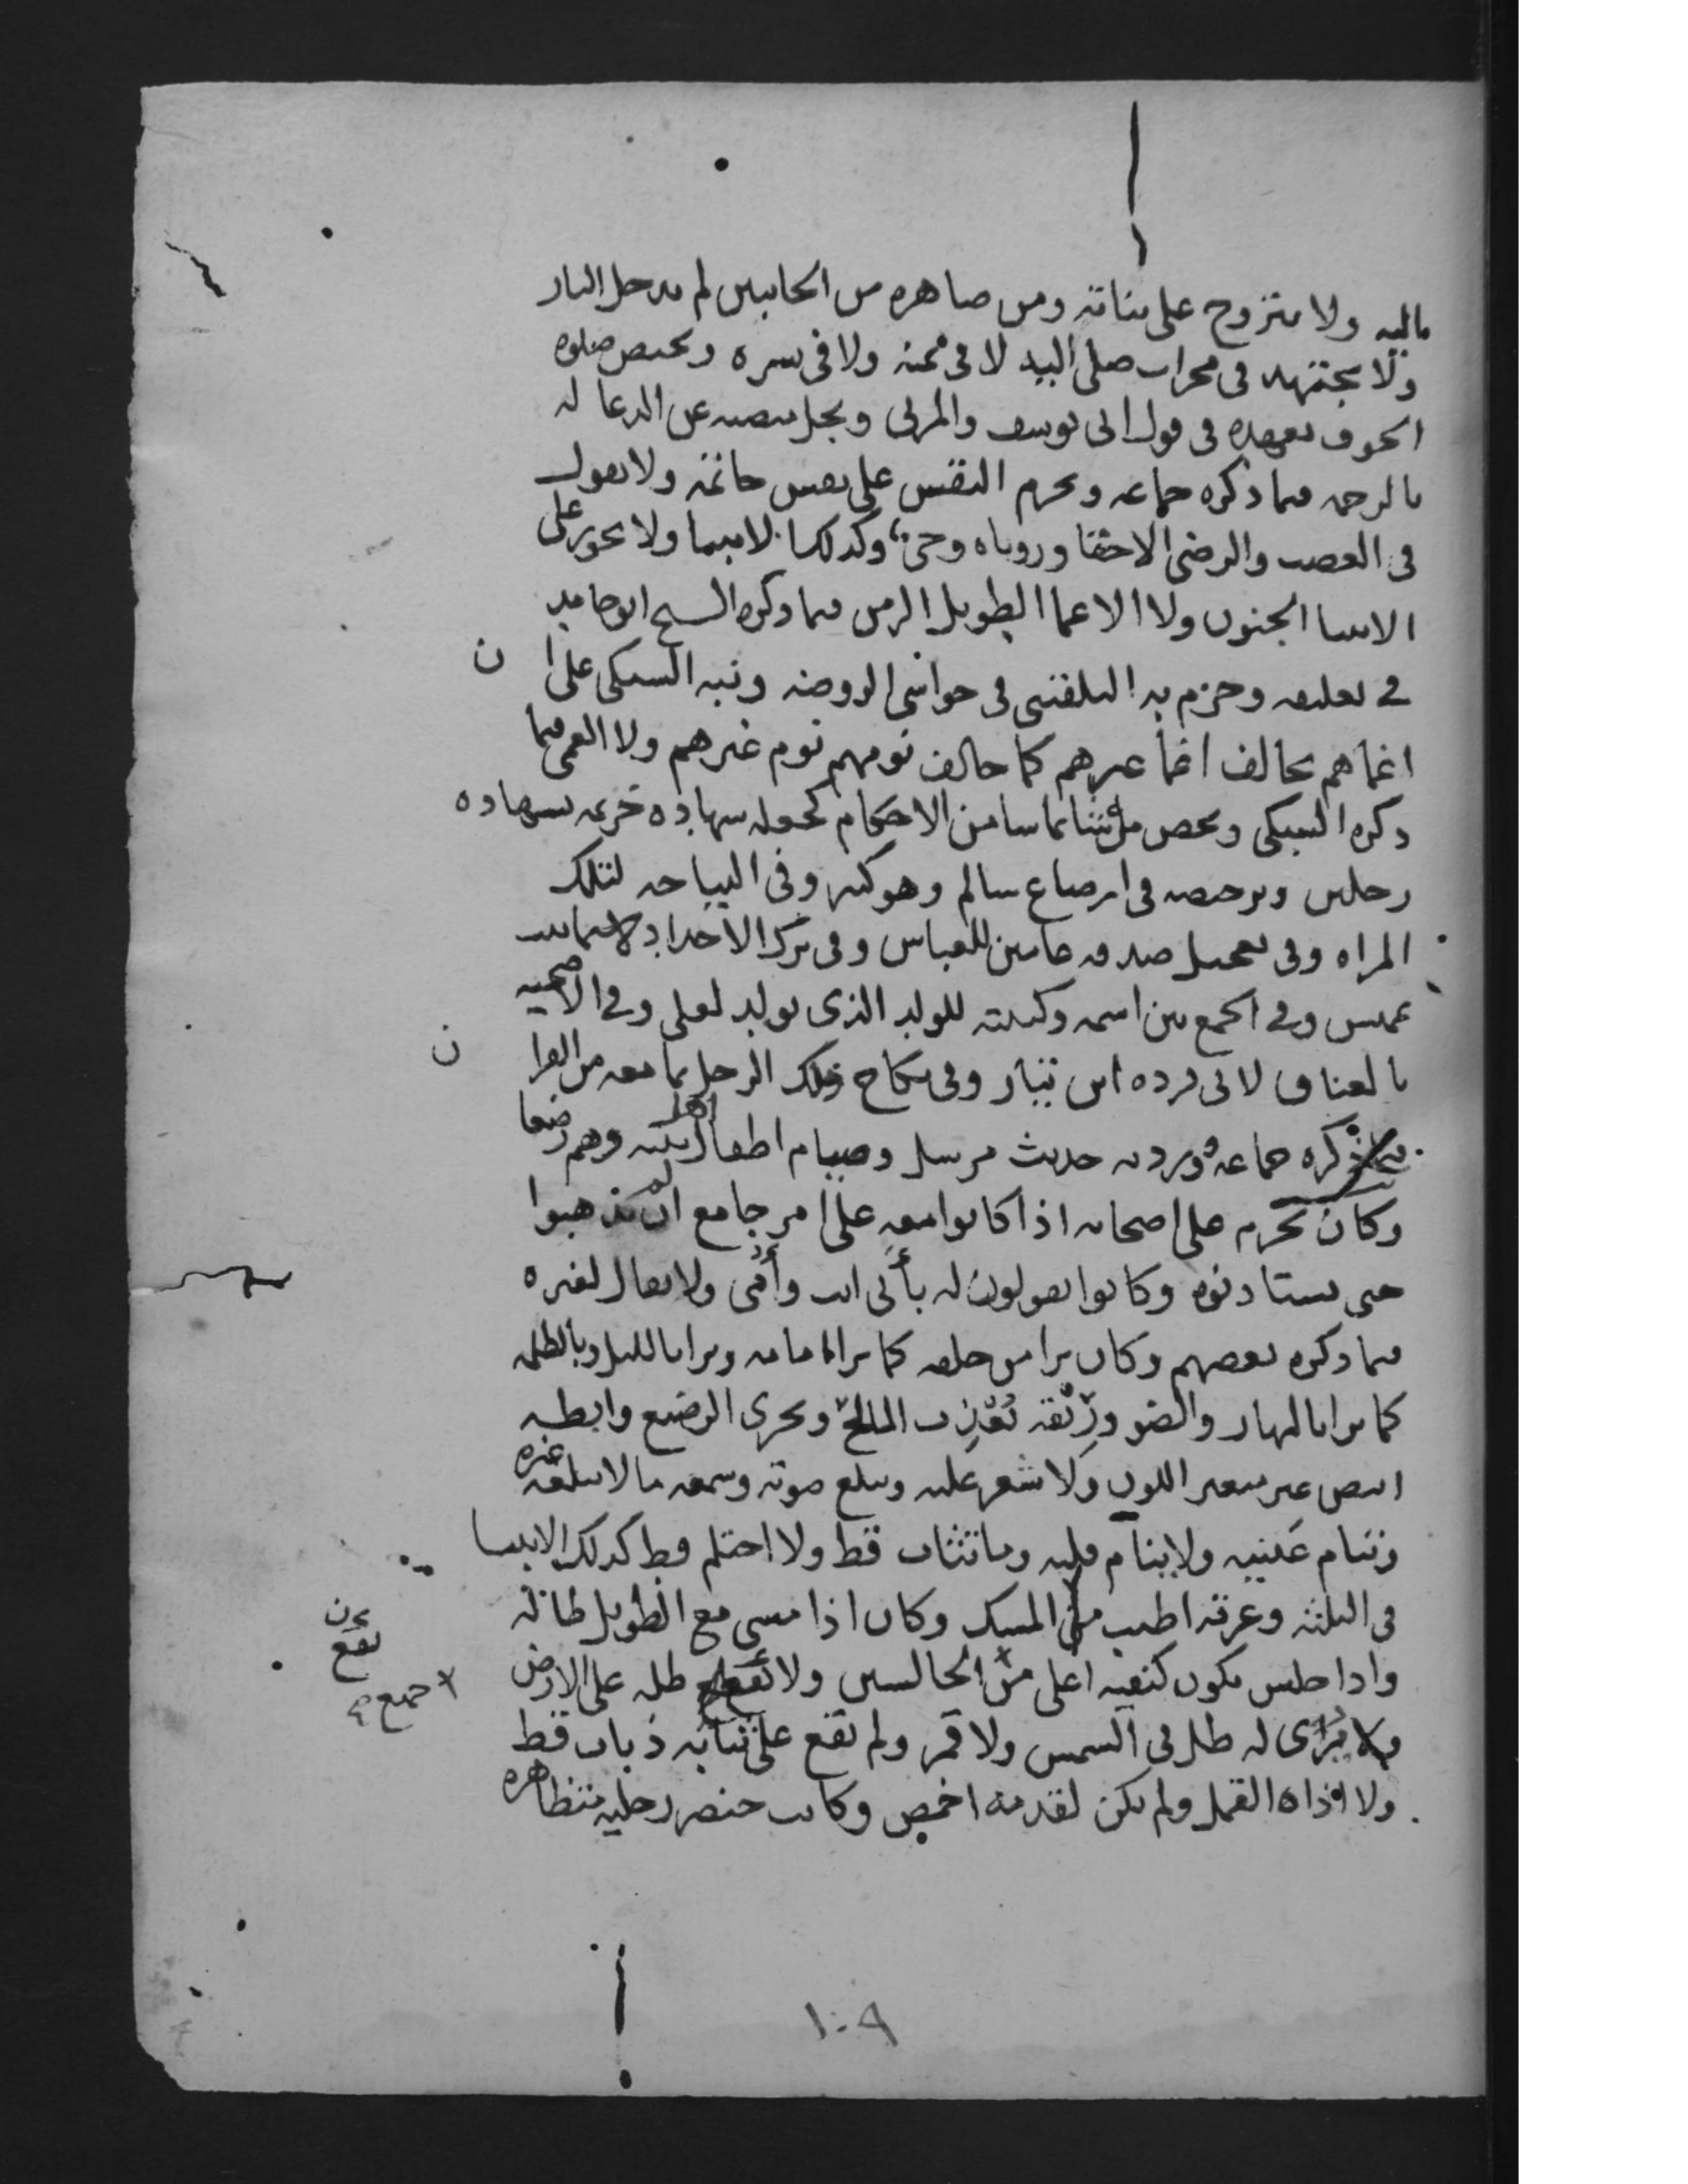 ماليه ولا يتزوج على بناته ومن صاهره من الجانبين لم يدخل النار
ولا يجتهد في محراب صلى اليه لا في يمنه ولا في يسره ويختص صلوه
الخوف بعهده في قول ابي يوسف والمزني ويجل منصبه عن الدعا له
بالرحمه فيما ذكره جماعه ويحرم النقش على نقش خاتمه ولا يقول
في الغضب والرضى الا حقا وروياه وحي وكذلك الانبيا ولا يجوز على
الانبيا الجنون ولا الاغما الطويل الزمن فيما ذكره الشيخ ابو حامد
في تعليقه وجزم به البلقيني في حواشي الروضه ونبه السبكي على ان
اغماهم يخالف اغما غيرهم كما خالف نومهم نوم غيرهم ولا العمى فيما
ذكره السبكي ويخص من شا بما شا من الاحكام كجعله شهاده خزيمه بشهاده
رجلين وترخيصه في ارضاع سالم وهو كبير وفي النياحه لتلك
المراه وفي تعجيل صدقه عامين للعباس وفي ترك الاحداد لاسما بنت
عميس وفي الجمع بين اسمه وكنيته للولد الذي يولد لعلي وفي الاضحيه
بالعناق لابي برده ابن نيار وفي نكاح ذلك الرجل بما معه من القران
فيما ذكره جماعه وورد به حديث مرسل وصيام اطفال اهل بيته وهم رضعا
وكان يحرم على اصحابه اذا كانوا معه على امر جامع ان يذهبوا
حتى يستاذنوه وكانوا يقولون له بأبي انت وأمي ولا يقال لغيره
فيما ذكره بعضهم وكان يرا من خلفه كما يرا امامه ويرا بالليل وبالظلمه
كما يرا بالنهار والضو وريقه يعذب المالح ويجزى الرضيع وابطه
ابيض غير متغير اللون ولا شعر عليه ويبلغ صوته وسمعه ما لا يبلغه غيره
وتنام عينيه ولا ينام قلبه وما تثاب قط ولا احتلم قط كذلك الانبيا
في الثلثه وعرقه اطيب من المسك وكان اذا مشى مع الطويل طاله
واذا جلس يكون كتفيه اعلى من الجالسين ولا يقع ظله على الارض
ولا يرى له ظل في الشمس ولا قمر ولم يقع على ثيابه ذباب قط
ولا اذاه القمل ولم يكن لقدمه اخمص وكانت خنصر رجليه متظاهره
يقع
جميع
١٠٩